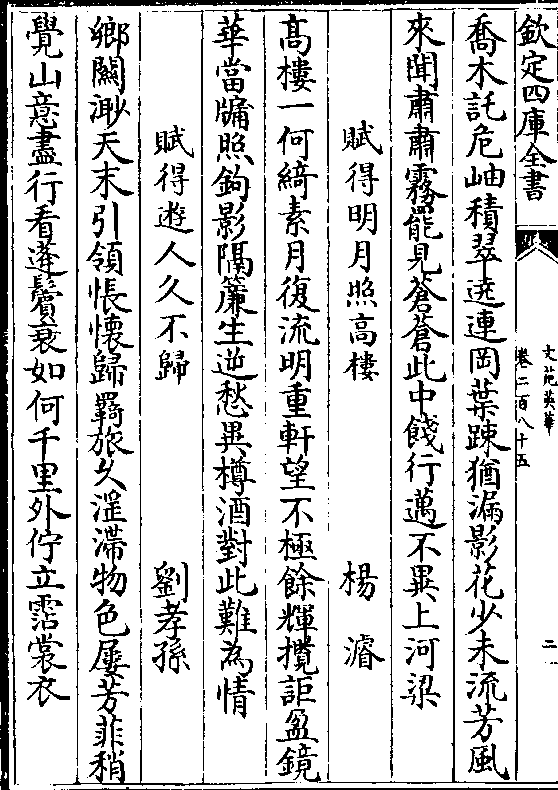 欽定四庫全書
文苑英華
卷二百八十五
二
喬木託危岫積翠遶連岡葉踈猶漏影花少未流芳風
來聞肅肅霧罷見蒼蒼此中餞行邁不異上河梁
賦得明月照高樓
楊濬
髙樓一何綺素月復流明重軒望不極餘輝攬詎盈鏡
華當牖照鉤影隔簾生逆愁異樽酒對此難為情
賦得遊人久不歸
劉孝孫
鄉闗渺天末引領悵懷歸羇旅久滛滯物色屢芳菲稍
覺山意盡行看蓬鬢衰如何千里外佇立霑裳衣